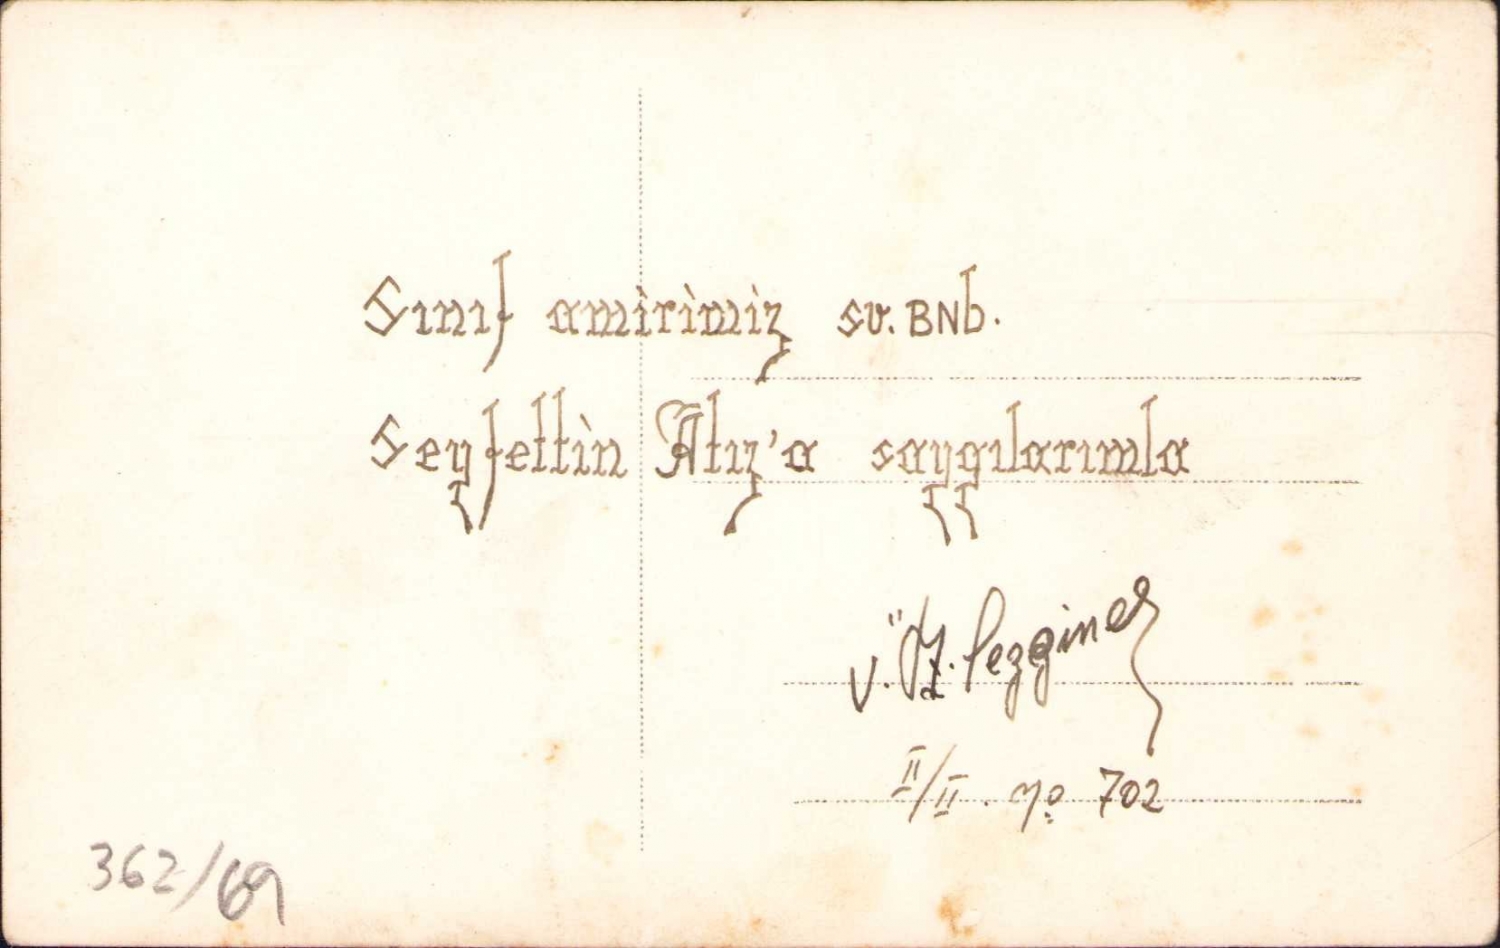 Sınıf amirimiz sv. BNb.
Seyfettin Atız'a saygılarımla
Sezginer
II/II. No 702
362/69